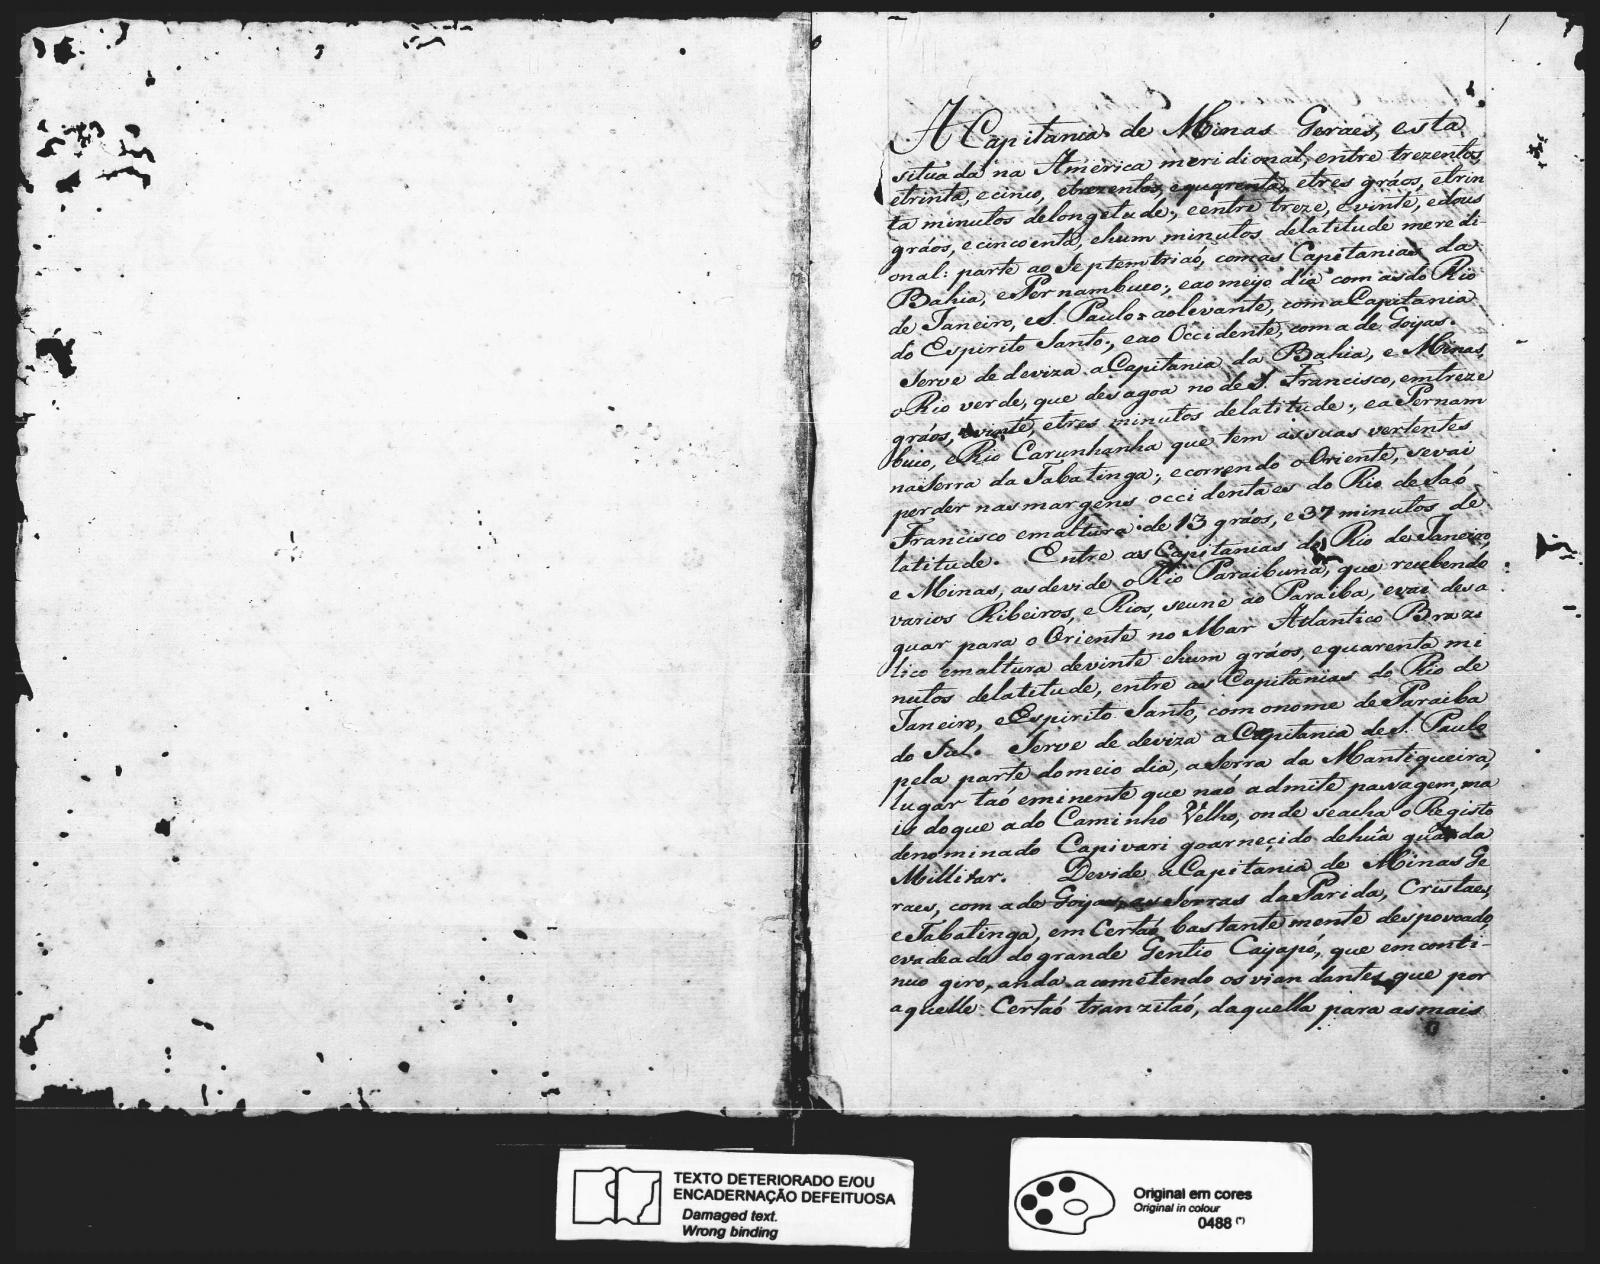 1
A Capitania de Minas Geraes, esta
situada na America meridional, entre trezentos,
etrinta, ecinco, etrezentos, equarenta, etres gráos, etrin
ta minutos delongetude; eentre treze, evinte, edous
gráos, ecincoenta, ehum minutos delatitude meredi-
onal: parte ao Septemtriaó, comas Capitanias da
Bahia, ePernambuco; eaomeyo dia com asdo Rio
de Janeiro, eS. Paulo: aolevante, comaCapitania
do Espirito Santo; eao Occidente, coma de Goyas.
Serve de deviza aCapitania da Bahia, e Minas
o Rio verde, que desagoa no de S. Francisco, emtreze
gráos, evinte, etres minutos delatitude; eaPernam
buco, eRio Carunhanha que tem assuas vertentes
naSerra da Tabatinga; ecorrendo oOriente, sevai
perder nasmargens occidentaes do Rio deSaó
Francisco emaltura de 13 gráos, e 37 minutos de
latitude. Entre as Capitanias do Rio deJaneiro,
e Minas, asdevide oRio Paraibuna, que recebendo
varios Ribeiros, e Rios, seune ao Paraiba, evai desa
guar para o Oriente no Mar Atlantico Brazi
lico emaltura devinte ehum gráos, equarenta mi
nutos delatitude, entre as Capitanias do Rio de
Janeiro, eEspirito Santo, com onome deParaiba
do Sul. Serve de deviza aCapitania deS. Paulo
pela parte domeio dia, aSerra da Mantiqueira,
lugar taó eminente que naó admite passagem, ma
is doque ado Caminho Velho, onde seacha o Registo
denominado Capivari goarnecido dehuã guarda
Millitar. Devide aCapitania de Minas Ge
raes, com ade Goyas, as Serras daParida, Cristaes,
eTabatinga, em Certaó bastantemente despovoado,
evadeado dogrande Gentio Cayapó, que emconti-
nuo giro, anda acometendo osviandantes que por
aquelle Certaó tranzitaó, daquella para asmais
TEXTO DETERIORADO E/OU
ENCADERNAÇÃO DEFEITUOSA
Damaged text.
Wrong binding
Original em cores
Original in colour
0488 (*)